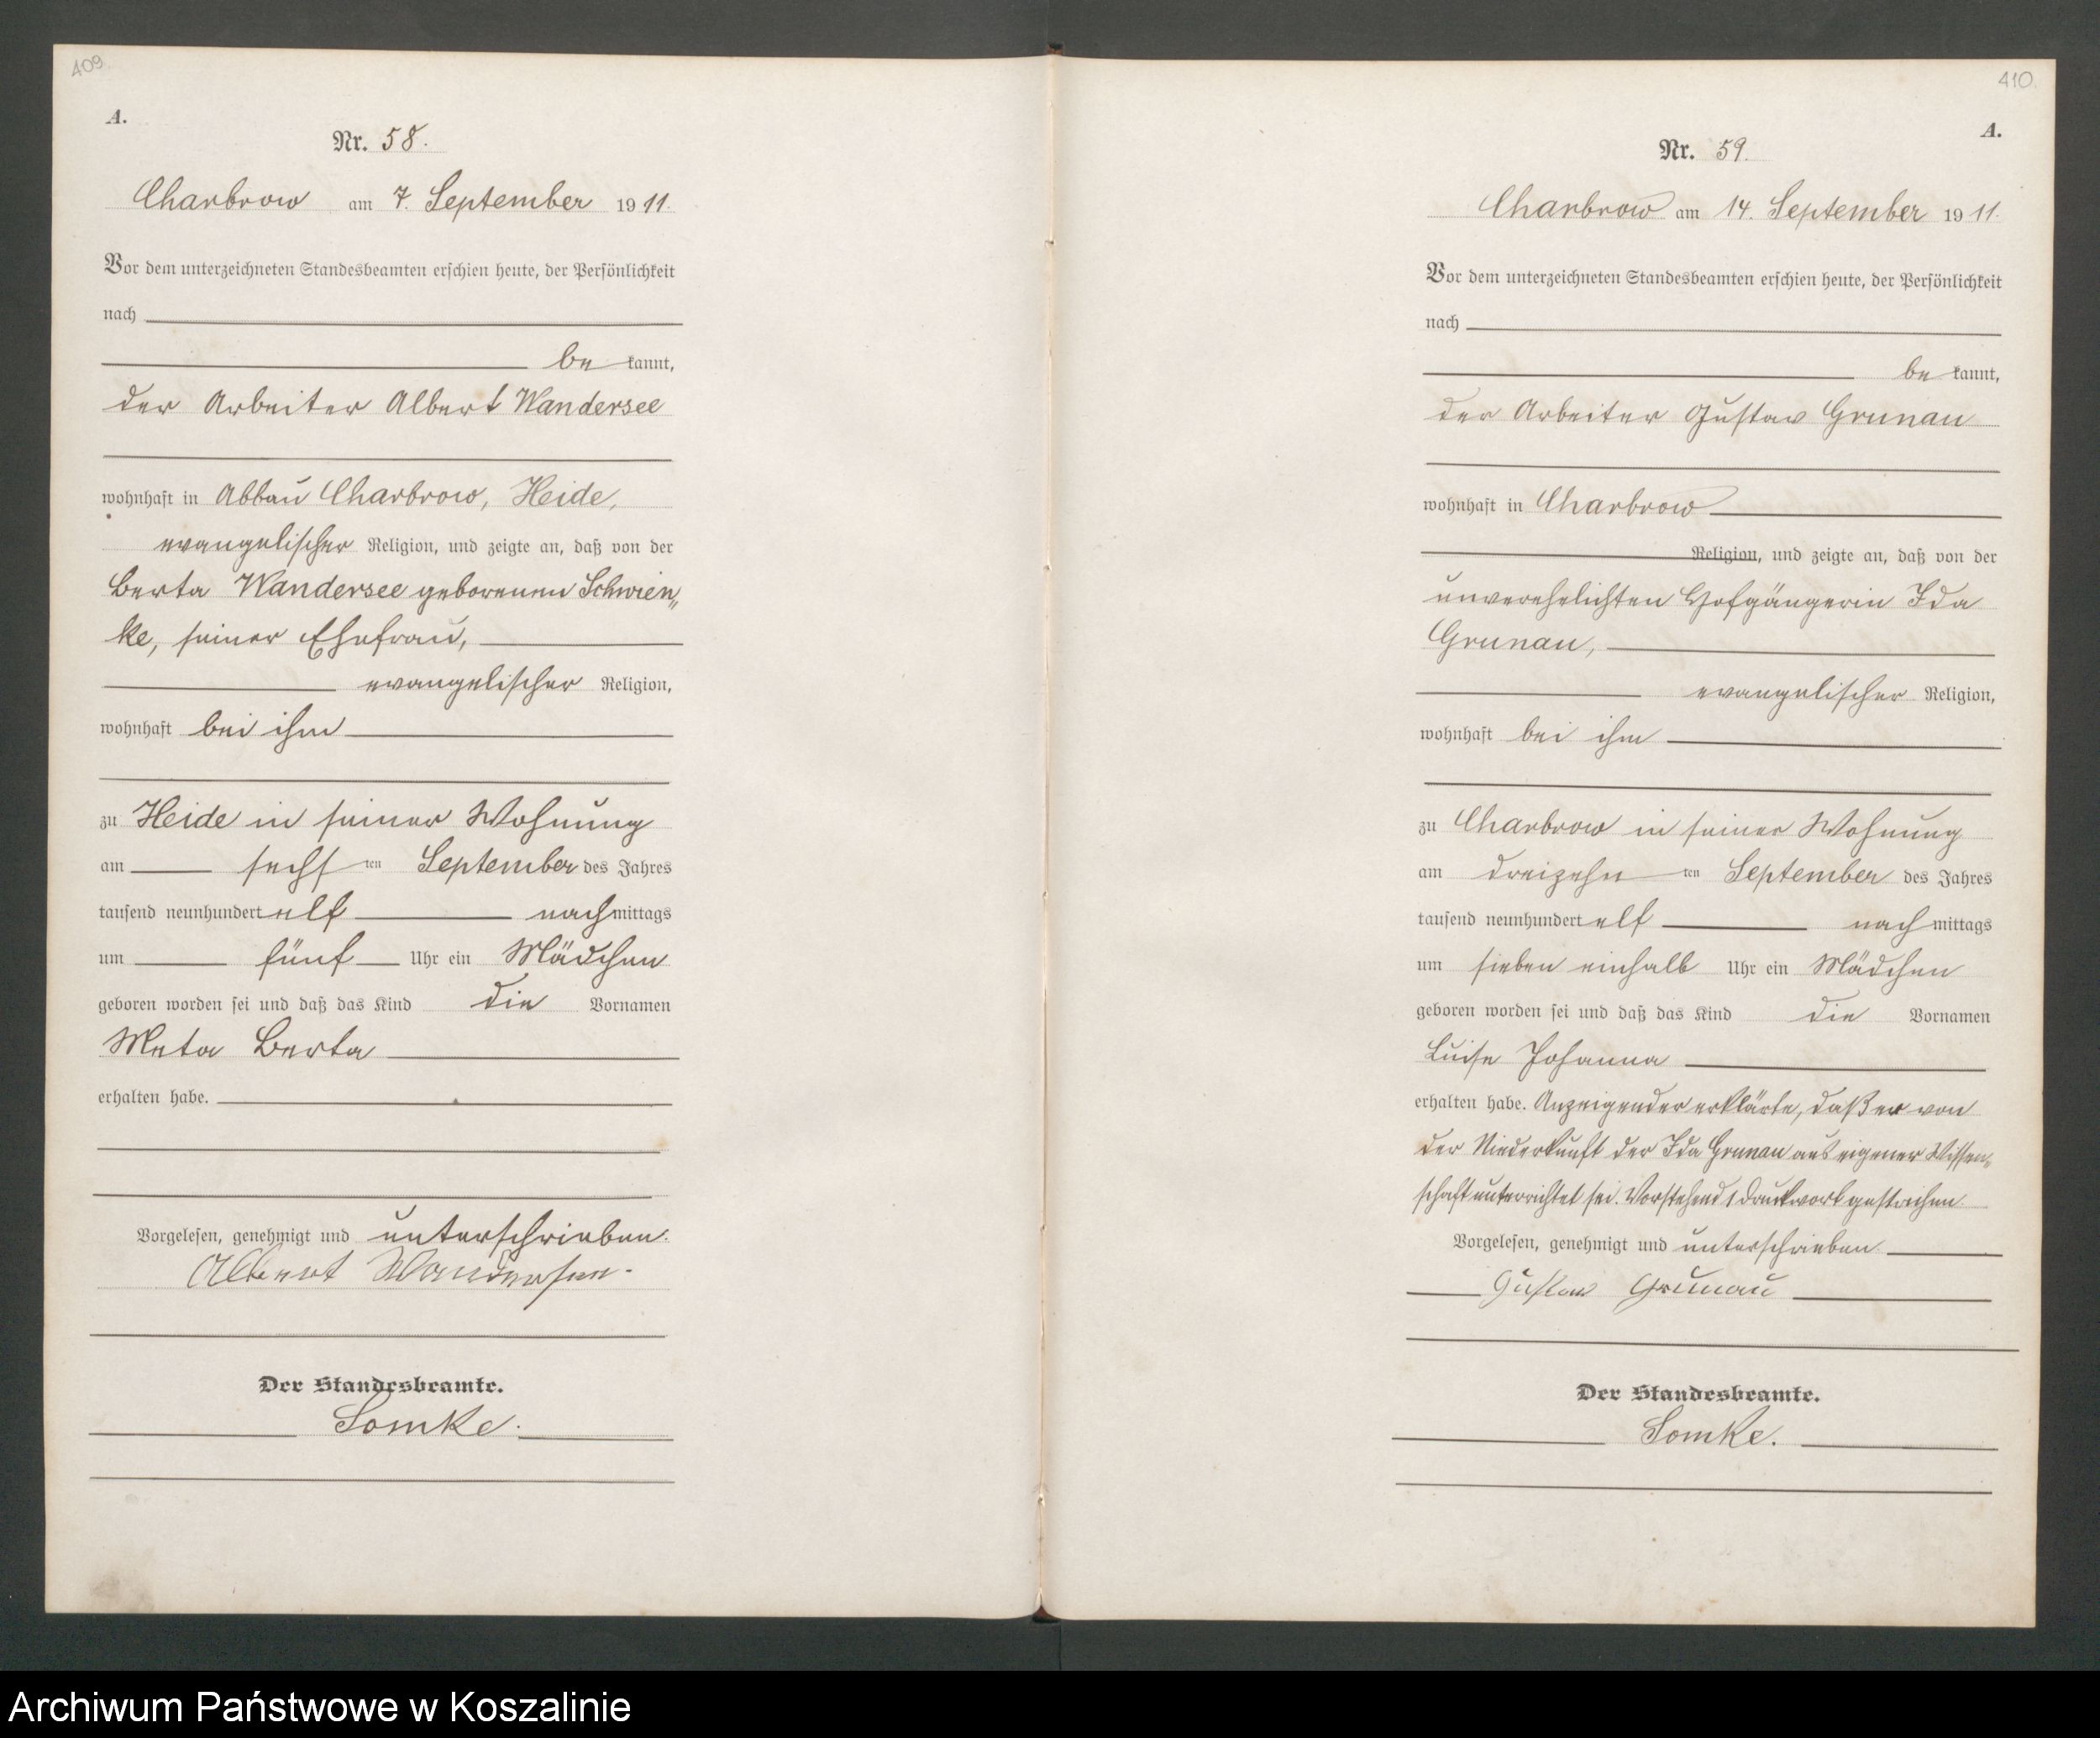 409
A.
Nr. 58.
Charbrow am 7. September 1911.
Vor dem unterzeichneten Standesbeamten erschien heute, der Persönlichkeit
nach
be kannt,
der Arbeiter Albert Wandersee
wohnhaft in Abbau Charbrow, Heide,
evangelischer Religion, und zeigte an, daß von der
Berta Wandersee geborenen Schwien„
ke, seiner Ehefrau,
evangelischer Religion,
wohnhaft bei ihm
zu Heide in seiner Wohnung
am sechsten September des Jahres
tausend neunhundert elf nachmittags
um fünf Uhr ein Mädchen
geboren worden sei und daß das Kind die Vornamen
Meta Berta
erhalten habe.
Vorgelesen, genehmigt und unterschrieben.
Albert Wandersee.
Der Standesbeamte.
Lomke.
410
A.
Nr. 59.
Charbrow am 14. September 1911.
Vor dem unterzeichneten Standesbeamten erschien heute, der Persönlichkeit
nach
be kannt,
der Arbeiter Gustav Grunau
wohnhaft in Charbrow
Religion, und zeigte an, daß von der
unverehelichten Hofgängerin Ida
Grunau,
evangelischer Religion,
wohnhaft bei ihm
zu Charbrow in seiner Wohnung
am dreizehnten September des Jahres
tausend neunhundert elf nachmittags
um sieben einhalb Uhr ein Mädchen
geboren worden sei und daß das Kind die Vornamen
Luise Johanna
erhalten habe. Anzeigender erklärte, daß er von
der Niederkunft der Ida Grunau aus eigener Wissen„
schaft unterrichtet sei. Vorstehend 1 Druckwort gestrichen.
Vorgelesen, genehmigt und unterschrieben
Gustav Grunau
Der Standesbeamte.
Lomke.
Archiwum Państwowe w Koszalinie